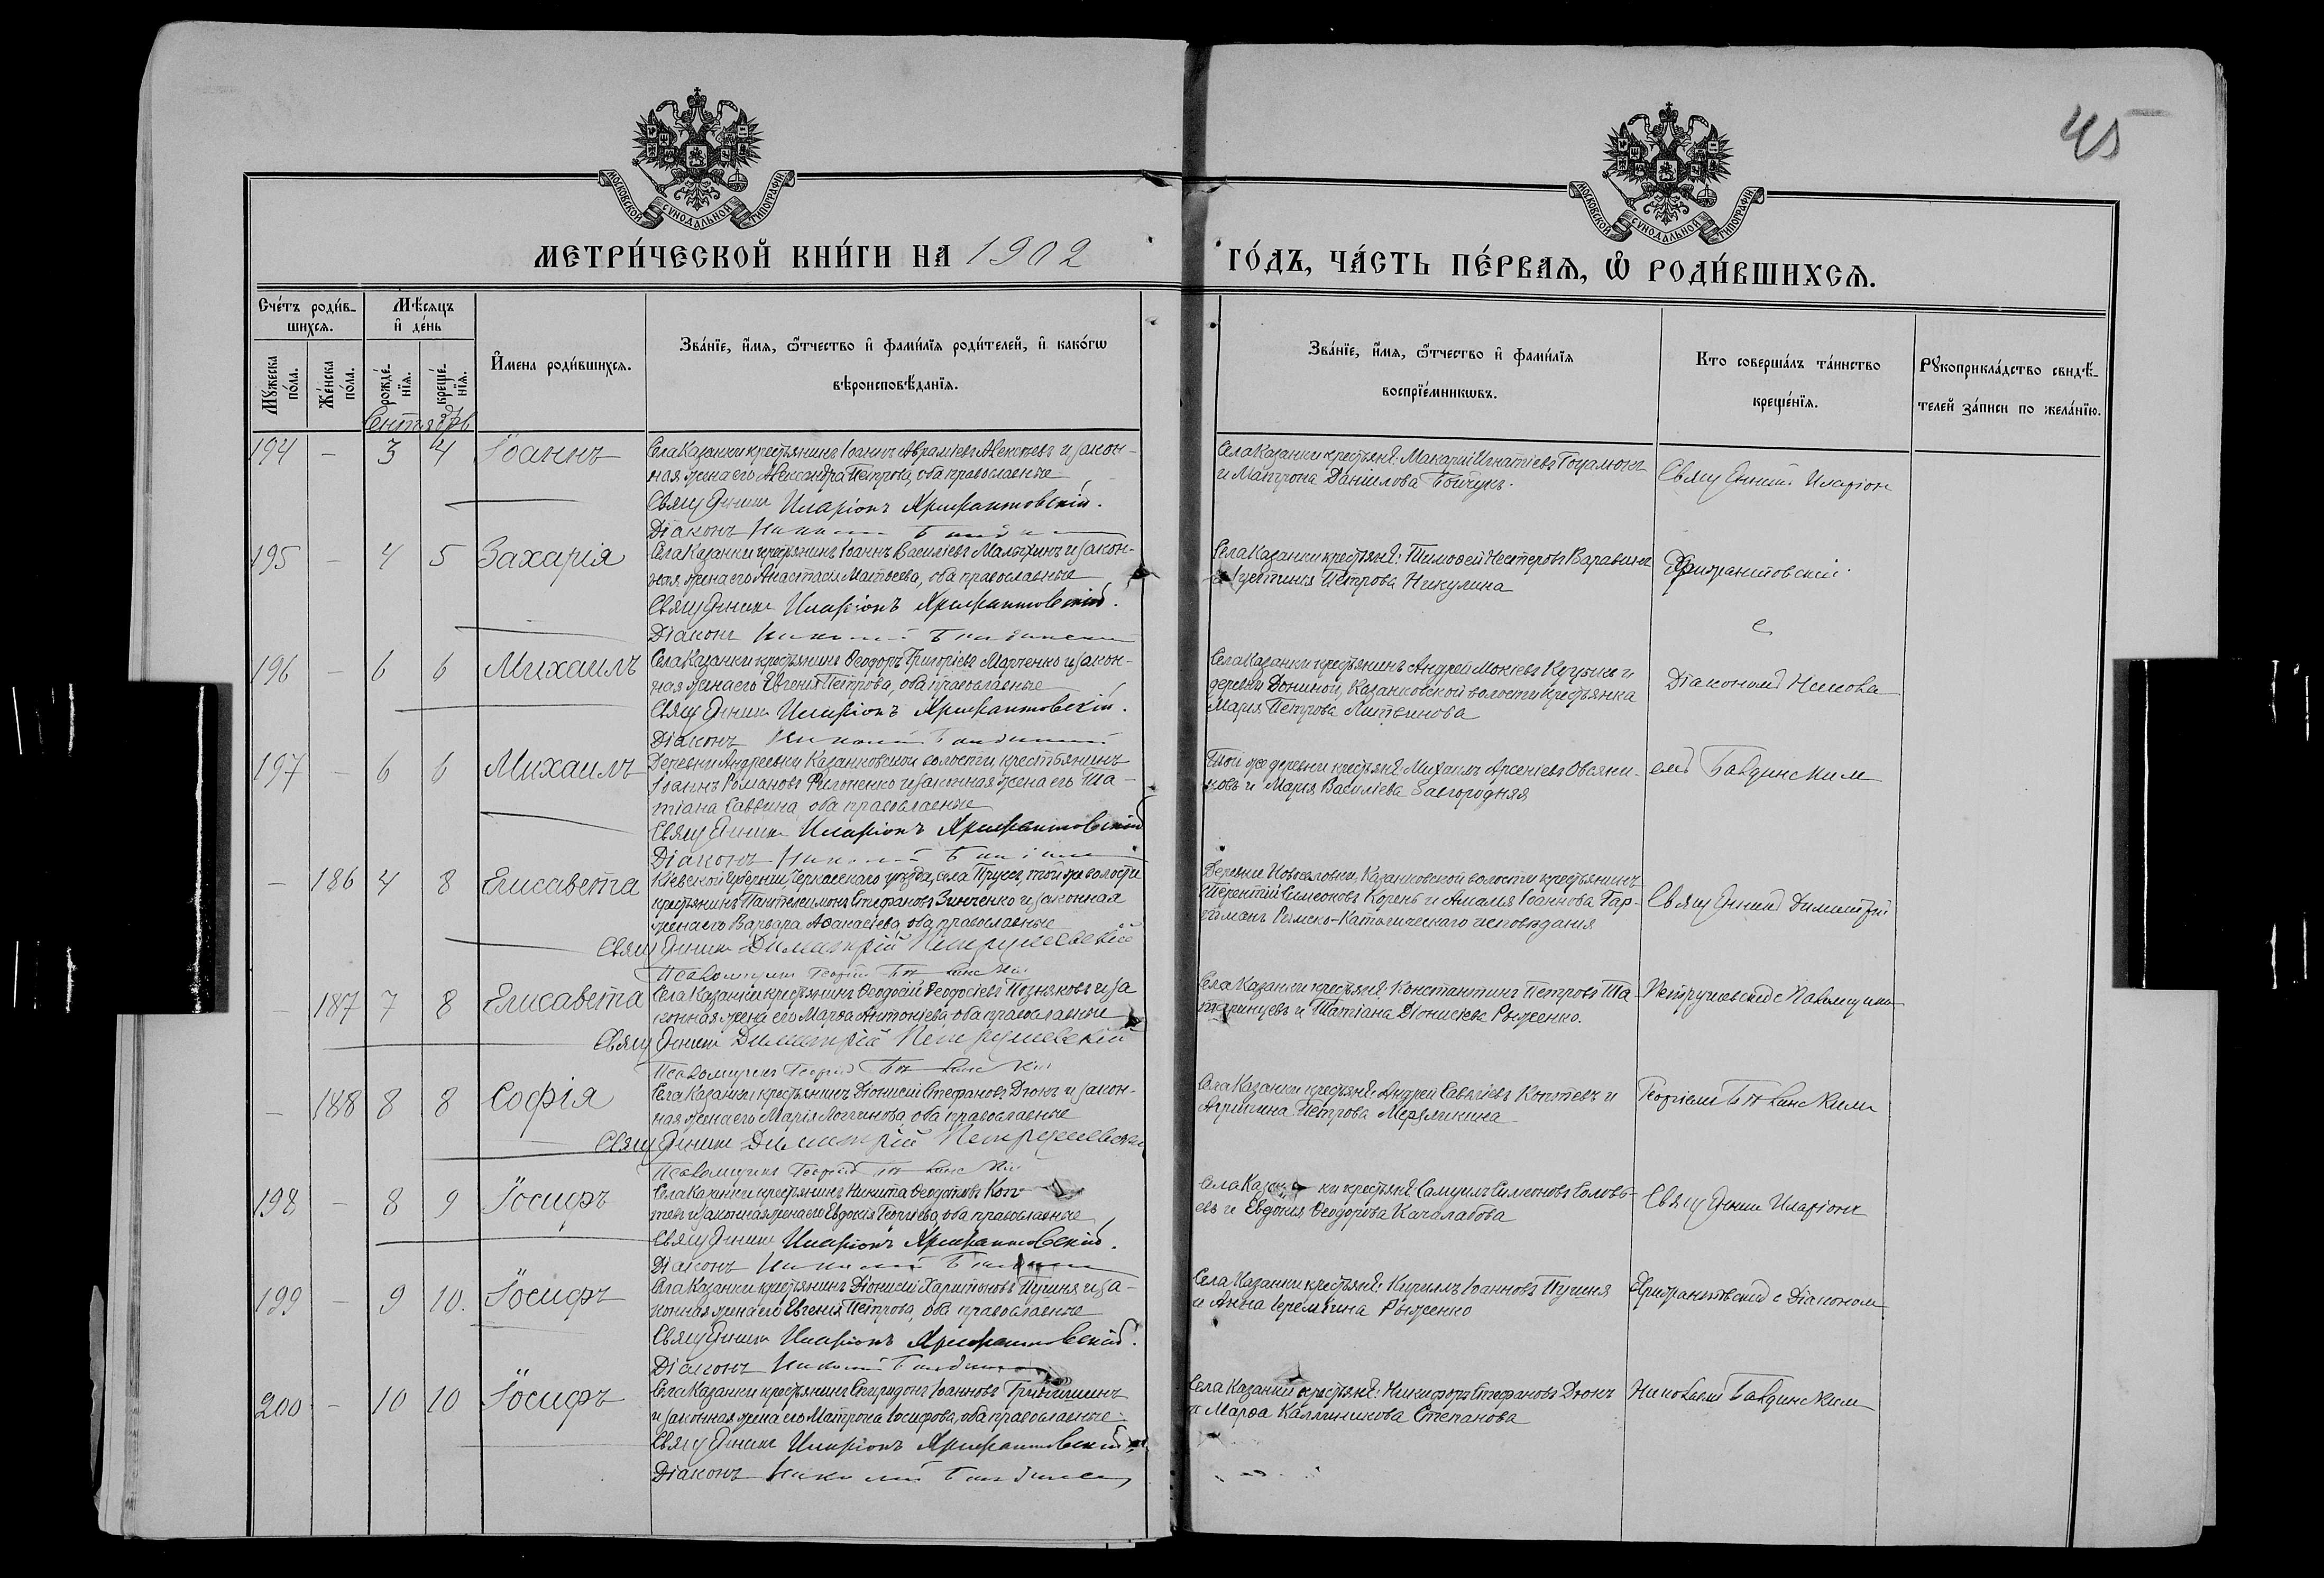 45
МОСКОВСКОЙ СУНОДАЛЬНОЙ ТИПОГРАФІИ
МОСКОВСКОЙ СУНОДАЛЬНОЙ ТИПОГРАФІИ
МЕТРИ́ЧЕСКОЙ КНИ́ГИ НА 1902
ГО́ДЪ, ЧА́СТЬ ПЕ́РВАЯ, Ѡ РОДИ́ВШИХСЯ.
Сче́тъ роди́в-
шихся.
Мѣсяцъ
и де́нь
Му́жеска по́ла.
Же́нска по́ла.
рожде́нїя.
креще́нїя.
И́мена роди́вшихся.
Зва́нїе, и́мя, ѻ́тчество и фами́лїя роди́телей, и како́гѡ
вѣроисповѣ́данїя.
Зва́нїе, и́мя, ѻ́тчество и фами́лїя
воспрїе́мникѡвъ.
Кто соверша́лъ та́инство
креще́нїя.
Рукоприкла́дство свидѣ́-
телей за́писи по жела́нїю.
Сентябрь
194 — 3 4 Іоаннъ
Села Казанки крестьянинъ Іоаннъ Авраміевъ и закон-
ная жена его Александра Петрова, оба православные
Священникъ Иларіонъ Хрисанфовскій.
Діаконъ Николай
Села Казанки крестьяне: Макарій Игнатіевъ
и Матрона Даніилова Бойчукъ.
Священникъ Иларіон
195 — 4 5 Захарія
Села Казанки крестьянинъ Іоаннъ Василіевъ и закон-
ная жена его Анастасія Матѳеева, оба православные
Священникъ Иларіонъ Хрисанфовскій.
Діаконъ Николай
Села Казанки крестьяне: Тимоѳей Нестеровъ Варавинъ
и Іустинія Петрова Никулина
196 — 6 6 Михаилъ
Села Казанки крестьянинъ Ѳеодоръ Григоріевъ Марченко и закон-
ная жена его Евгенія Петрова, оба православные
Священникъ Иларіонъ Хрисанфовскій.
Діаконъ Николай
Села Казанки крестьянинъ Андрей Мокіевъ и
деревни Дониной, Казанковской волости крестьянка
Марія Петрова Литвинова
с
Діаконом Никола-
197 — 6 6 Михаилъ
Деревни Андреевки Казанковской волости крестьянинъ
Іоаннъ Романовъ Филоненко и законная жена его Та-
тіана Саввина, оба православные
Священникъ Иларіонъ Хрисанфовскій
Діаконъ Николай
Той же деревни крестьяне Михаилъ Арсеніевъ Овсяни-
ковъ и Марія Василіева Завгородняя
емъ
— 186 4 8 Елисавета
Кіевской губерніи, Черкасскаго уѣзда, села той же волости
крестьянинъ Пантелеимонъ Стефановъ Зинченко и законная
жена его Варвара Аѳанасіева, оба православные
Священникъ Димитрій Петрушевскій
Псаломщикъ Георгій
Деревни Новоселовки, Казанковской волости крестьянинъ
Терентій Симеоновъ Корень и Амалія Іоаннова Гар-
тманъ Римско-Католическаго исповѣданія
Священникъ Димитрій
— 187 7 8 Елисавета
Села Казанки крестьянинъ Ѳеодосій Ѳеодосіевъ Позняковъ и за
конная жена его Марѳа Антоніева оба православные
Священникъ Димитрій Петрушевскій
Псаломщикъ Георгій
Села Казанки крестьяне: Константинъ Петровъ Та-
таринцевъ и Татіана Діонисіева Рыженко.
Петрушевскій с Псаломщико
— 188 8 8 Софія
Села Казанки крестьянинъ Діонисій Стефановъ Дюкъ и закон-
ная жена его Марія Логгинова, оба православные
Священникъ Димитрій Петрушевскій
Псаломщикъ Георгій
Села Казанки крестьяне: Андрей Савватіевъ Коптевъ и
Агриппина Петрова Мерзликина
Георгіем
198 — 8 9 Іосифъ
Села Казанки крестьянинъ Никита Ѳеодотовъ Коп-
тевъ и законная жена его Евдокія Георгіева, оба православные
Священникъ Иларіонъ Хрисанфовскій.
Діаконъ Николай
Села Казанки крестьяне: Самуилъ Симеоновъ Соловь-
евъ и Евдокія Ѳеодорова Качалабова
Священникъ Иларіонъ
199 — 9 10. Іосифъ
Села Казанки крестьянинъ Діонисій Харитоновъ Пугиня и за-
конная жена его Евгенія Петрова, оба православные
Священникъ Иларіонъ Хрисанфовскій.
Діаконъ Николай
Села Казанки крестьяне: Кириллъ Іоанновъ Пугиня
и Анна Іереміина Рыженко
Хрисанфовскій с Діаконом
200 — 10 10 Іосифъ
Села Казанки крестьянинъ Спиридонъ Іоанновъ и законная жена его Матрона Іосифова, оба православные
Священникъ Иларіонъ Хрисанфовскій.
Діаконъ Николай
Села Казанки крестьяне: Никифоръ Стефановъ Дюкъ
и Марѳа Каллиникова Степанова
Николаем